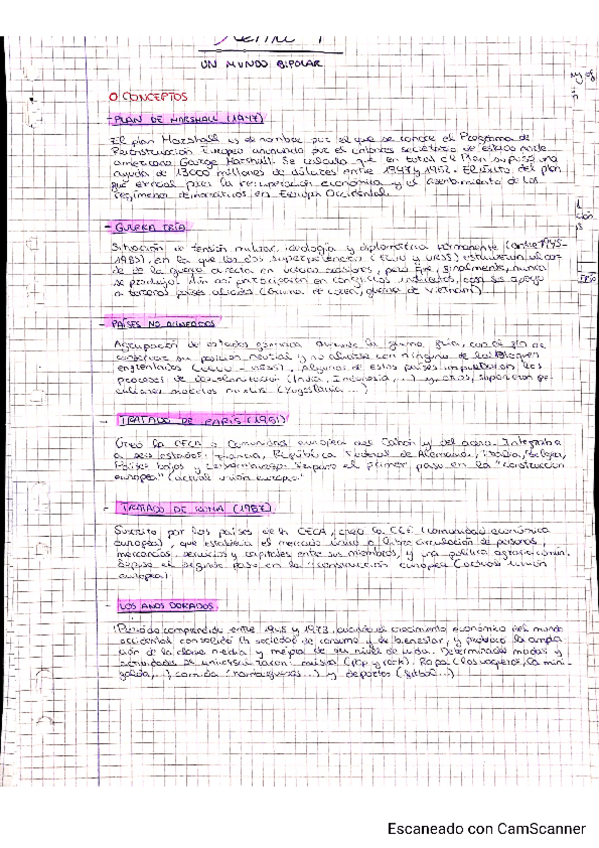 UN MUNDO BIPOLAR
O CONCEPTOS
- PLAN DE MARSHALL (1947)
El plan Marshall es el nombre por el que se conoce el Programa de
Reconstrucción Europeo anunciado por el secretario de estado norte
americano George Marshall. Se calcula que en total el Plan supuso una
ayuda de 13000 millones de dólares entre 1947 y 1952. El éxito del plan
fue crucial para la recuperación económica y el asentamiento de los
regímenes democráticos en Europa Occidental.
- GUERRA FRÍA
Situación de tensión militar, ideología y diplomática permanente (entre 1945-
1989), en la que las dos superpotencias (EEUU y URSS) estuvieron al bor
de de la guerra directa en varias ocasiones, pero que, finalmente, nunca
se produjo. Aún así participaron en conflictos indirectos, con su apoyo
a terceros países aliados (Guerra de Corea, guerra de Vietnam)
- PAÍSES NO ALINEADOS
Agrupación de estados durante la guerra fría, con el fin de
conservar su posición neutral y no aliarse con ninguno de los bloques
enfrentados (EEUU - URSS). Algunos de estos países impulsaron los
procesos de descolonización (India, Indonesia, ...) y otros,
modelos (Yugoslavia ...)
- TRATADO DE PARÍS (1951)
Creó la CECA o Comunidad europea del Carbón y del acero. Integraba
a seis estados: Francia, República Federal de Alemania, Italia, Bélgica,
Países bajos y Luxemburgo. Supuso el primer paso en la "construcción
europea" (actual unión europea)
- TRATADO DE ROMA (1957)
Suscrito por los países de la CECA, creó la CEE (comunidad económica
europea), que establecía el mercado único o libre circulación de personas,
mercancías, servicios y capitales entre sus miembros, y una política agraria común.
Supuso el segundo paso en la "construcción europea (actual unión
europea)
- LOS AÑOS DORADOS
Periodo comprendido entre 1945 y 1973, cuando el crecimiento económico del mundo
occidental consolidó la sociedad de consumo y de bienestar, y produjo la amplia
ción de la clase media y mejora de su nivel de vida. Determinadas modas y
actividades se universalizaron: música (pop y rock). Ropa (los vaqueros, la mini-
falda, ...), comida (hamburguesas ...) y deportes (fútbol...)
Escaneado con CamScanner